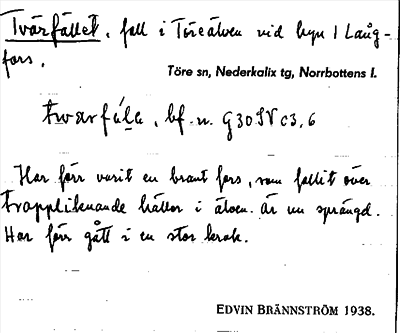 Tvärfallet, fall i Töreälven vid byn I Lång-
fors.
Töre sn, Nederkalix tg, Norrbottens l.
bf. n. G30SV c3,6
Har förr varit en brant fors, som fallit över
trappliknande hällar i älven. Är nu sprängd.
Har förr gått i en stor krok.
EDVIN BRÄNNSTRÖM 1938.